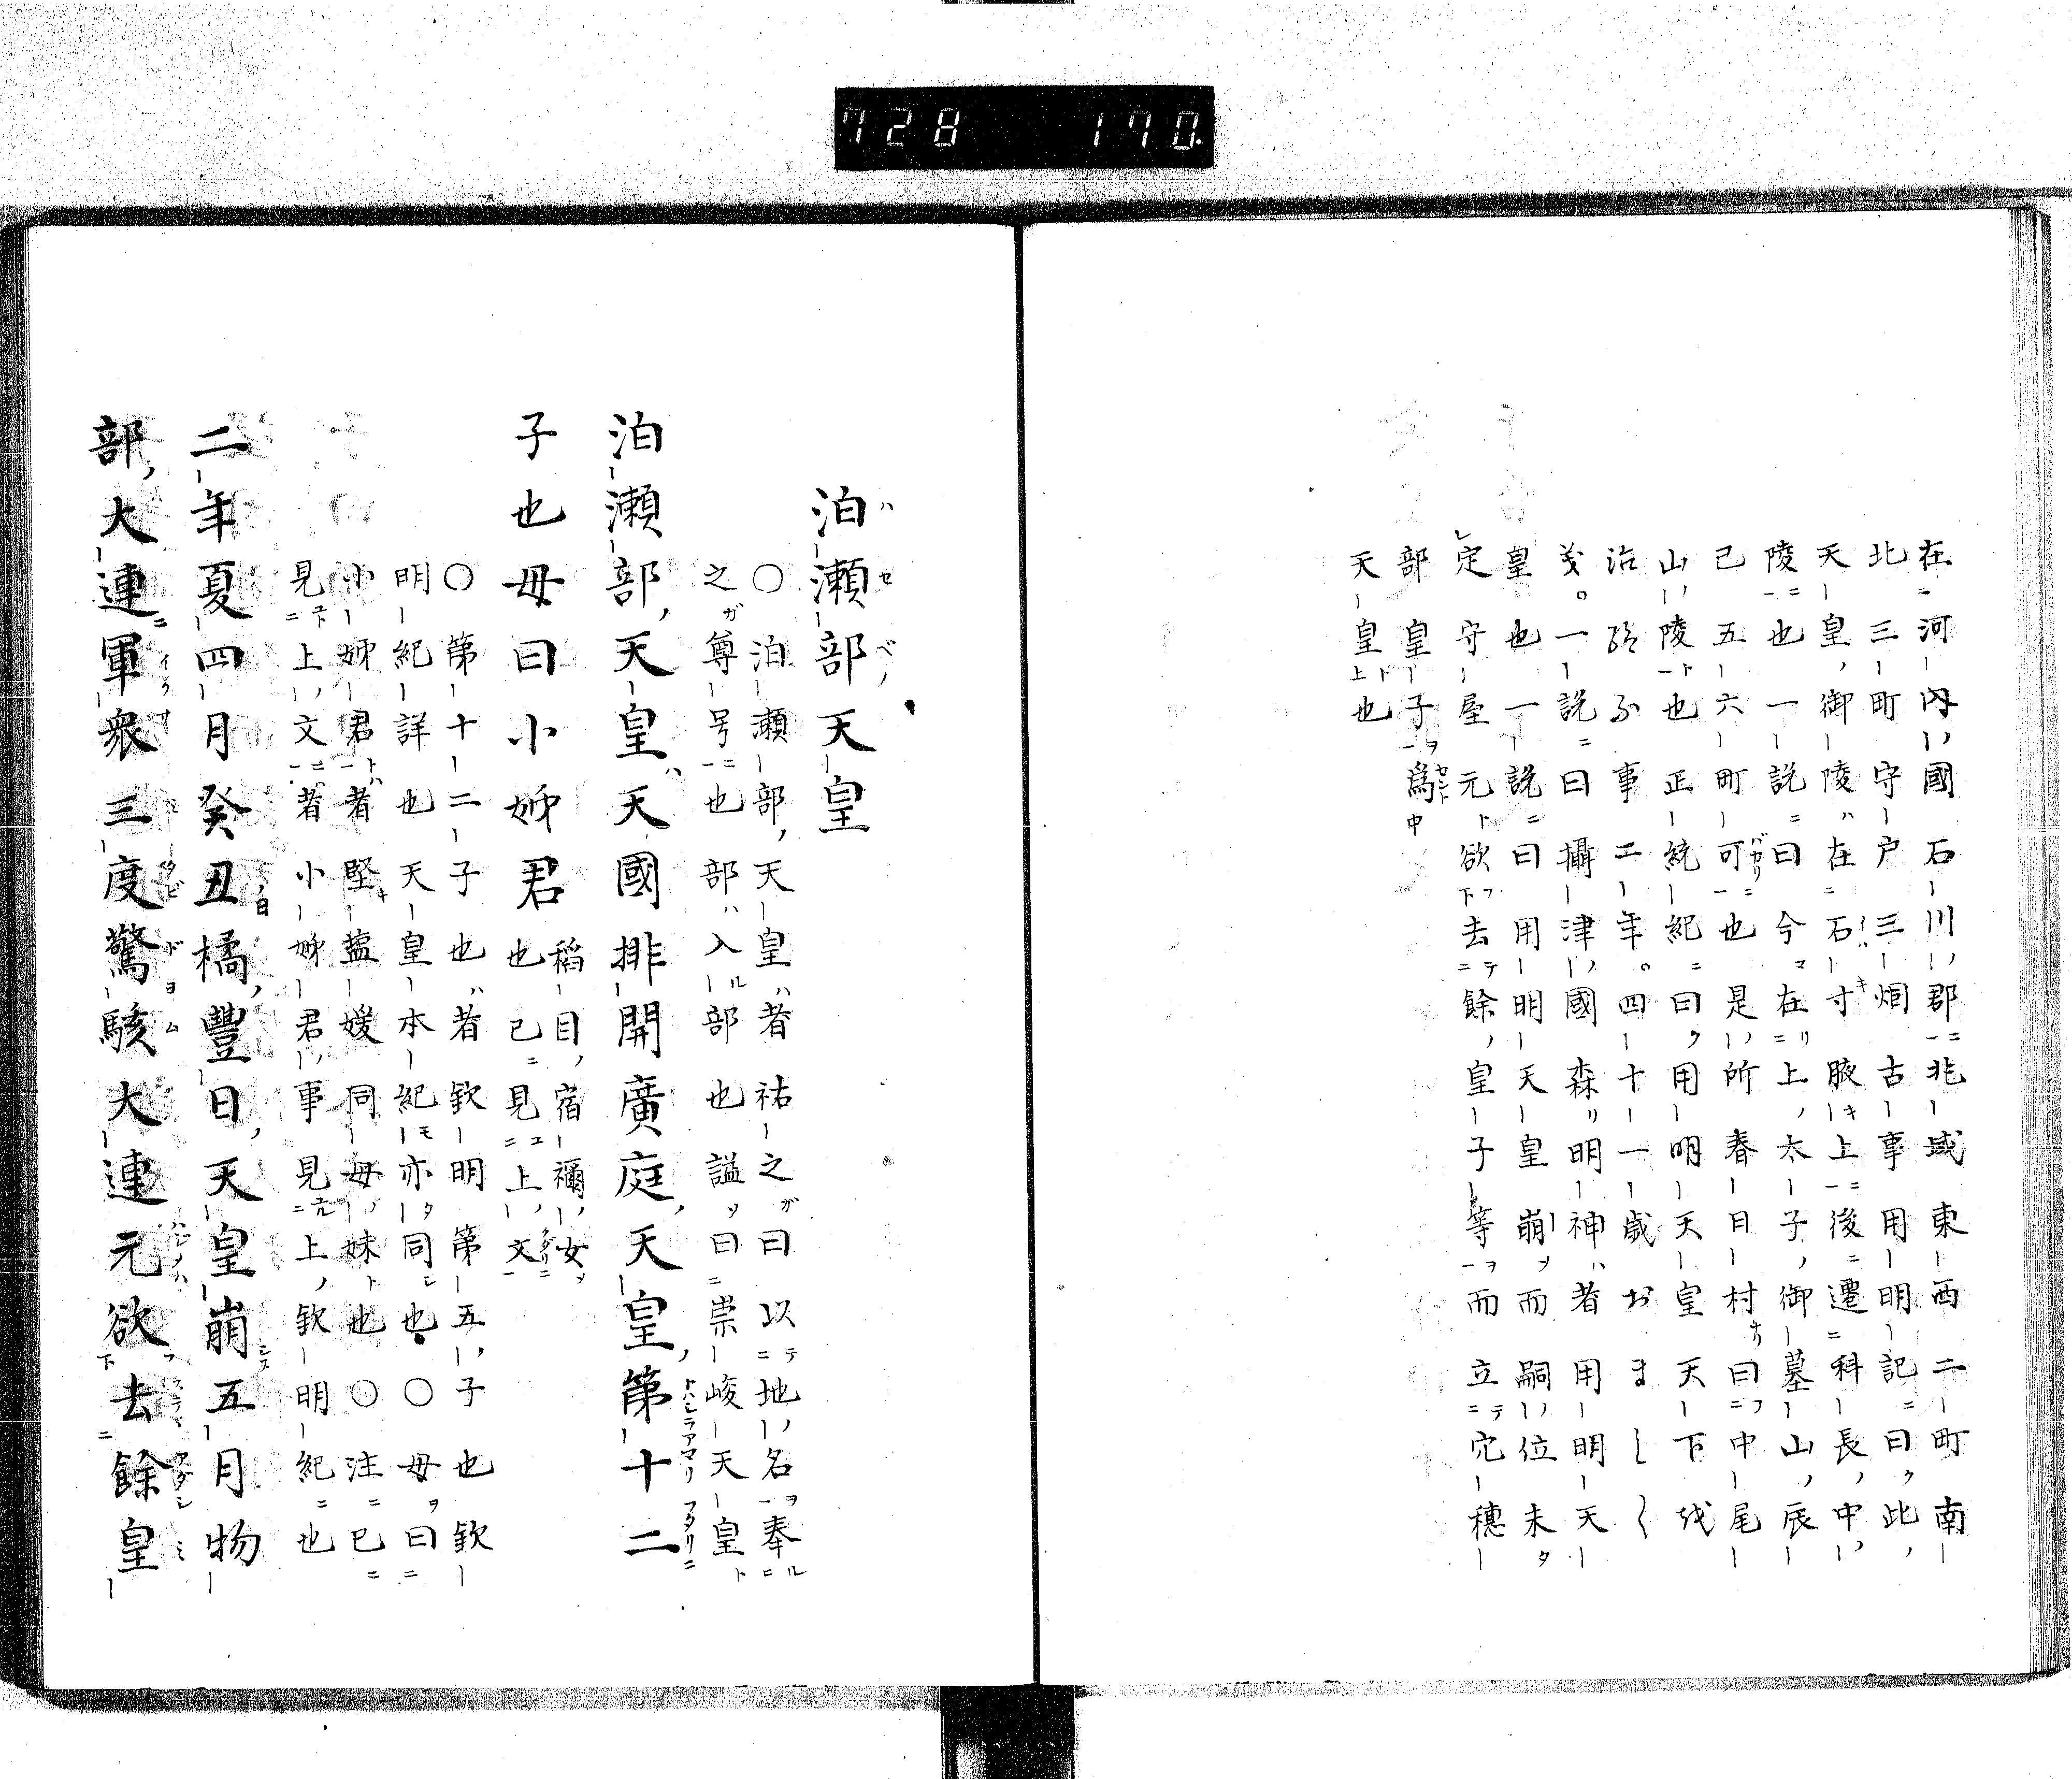 728 170.
在河内國石川郡兆域東西二町南
北三町守戸三烟古事用明記曰此
天皇御陵在石寸腋上後遷科長中
陵也一説曰今在上太子御墓山辰
巳五六町可也是所春日村曰中尾
山陵也正統紀曰用明天皇天下
治事二年四十一歳おましく
一説曰攝津國森明神者用明天
皇也一説曰用明天皇崩而嗣位未
定守屋元欲去餘皇子等而立穴穂
部皇子為
天皇也
泊瀬部天皇
〇泊瀬部天皇者祐之曰以地名奉
之尊号也部入部也謚曰崇峻天皇
泊瀬部天皇天國排開廣庭天皇第十二
子也母曰小姉君也稻目宿禰女已見上文
〇第十二子也者欽明第五子也欽
明紀詳也天皇本紀亦同也〇母曰
小姉君者堅塩媛同母妹也〇注已
見上文者小姉君事見上欽明紀也
二年夏四月癸丑橘豐日天皇崩五月物
部大連軍衆三度驚駭大連元欲去餘皇